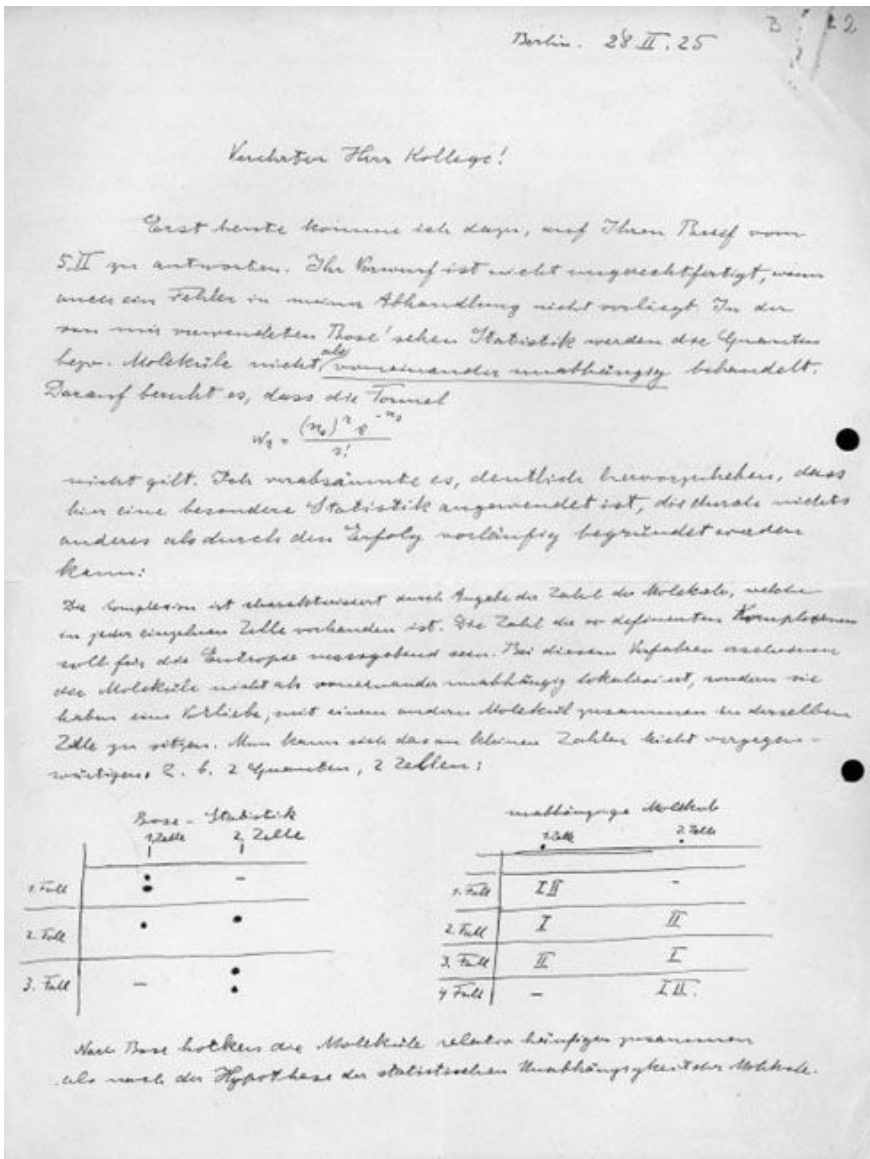 Berlin. 28 II. 25
Verehrter Herr Kollege!
Erst heute komme ich dazu, auf Ihren Brief vom
5 II zu antworten. Ihr Vorwurf ist nicht ungerechtfertigt, wenn
auch ein Fehler in meiner Abhandlung nicht vorliegt. In der
von mir verwendeten Bose'schen Statistik werden die Quanten
bezw. Moleküle nicht als voneinander unabhängig behandelt.
Darauf beruht es, dass die Formel
nicht gilt. Ich verabsäumte es, deutlich hervorzuheben, dass
hier eine besondere Statistik angewendet ist, die durch nichts
anderes als durch den Erfolg vorläufig begründet werden
kann:
Die Complexion ist charakterisiert durch Angabe der Zahl der Moleküle, welche
in jeder einzelnen Zelle vorhanden ist. Die Zahl der so definierten Komplexionen
soll für die Entropie massgebend sein. Bei diesem Verfahren erscheinen
die Moleküle nicht als voneinander unabhängig lokalisiert, sondern sie
haben eine Vorliebe, mit einem andern Molekül zusammen in derselben
Zelle zu sitzen. Man kann sich das an kleinen Zahlen leicht vergegen-
wärtigen. Z. b. 2 Quanten, 2 Zellen:
Bose-Statistik
1. Zelle 2. Zelle
1. Fall –
2. Fall
3. Fall –
unabhängige Moleküle
1. Zelle 2. Zelle
1. Fall I II –
2. Fall I II
3. Fall II I
4 Fall – I II.
Nach Bose hocken die Moleküle relativ häufiger zusammen
als nach der Hypothese der statistischen Unabhängigkeit der Moleküle.